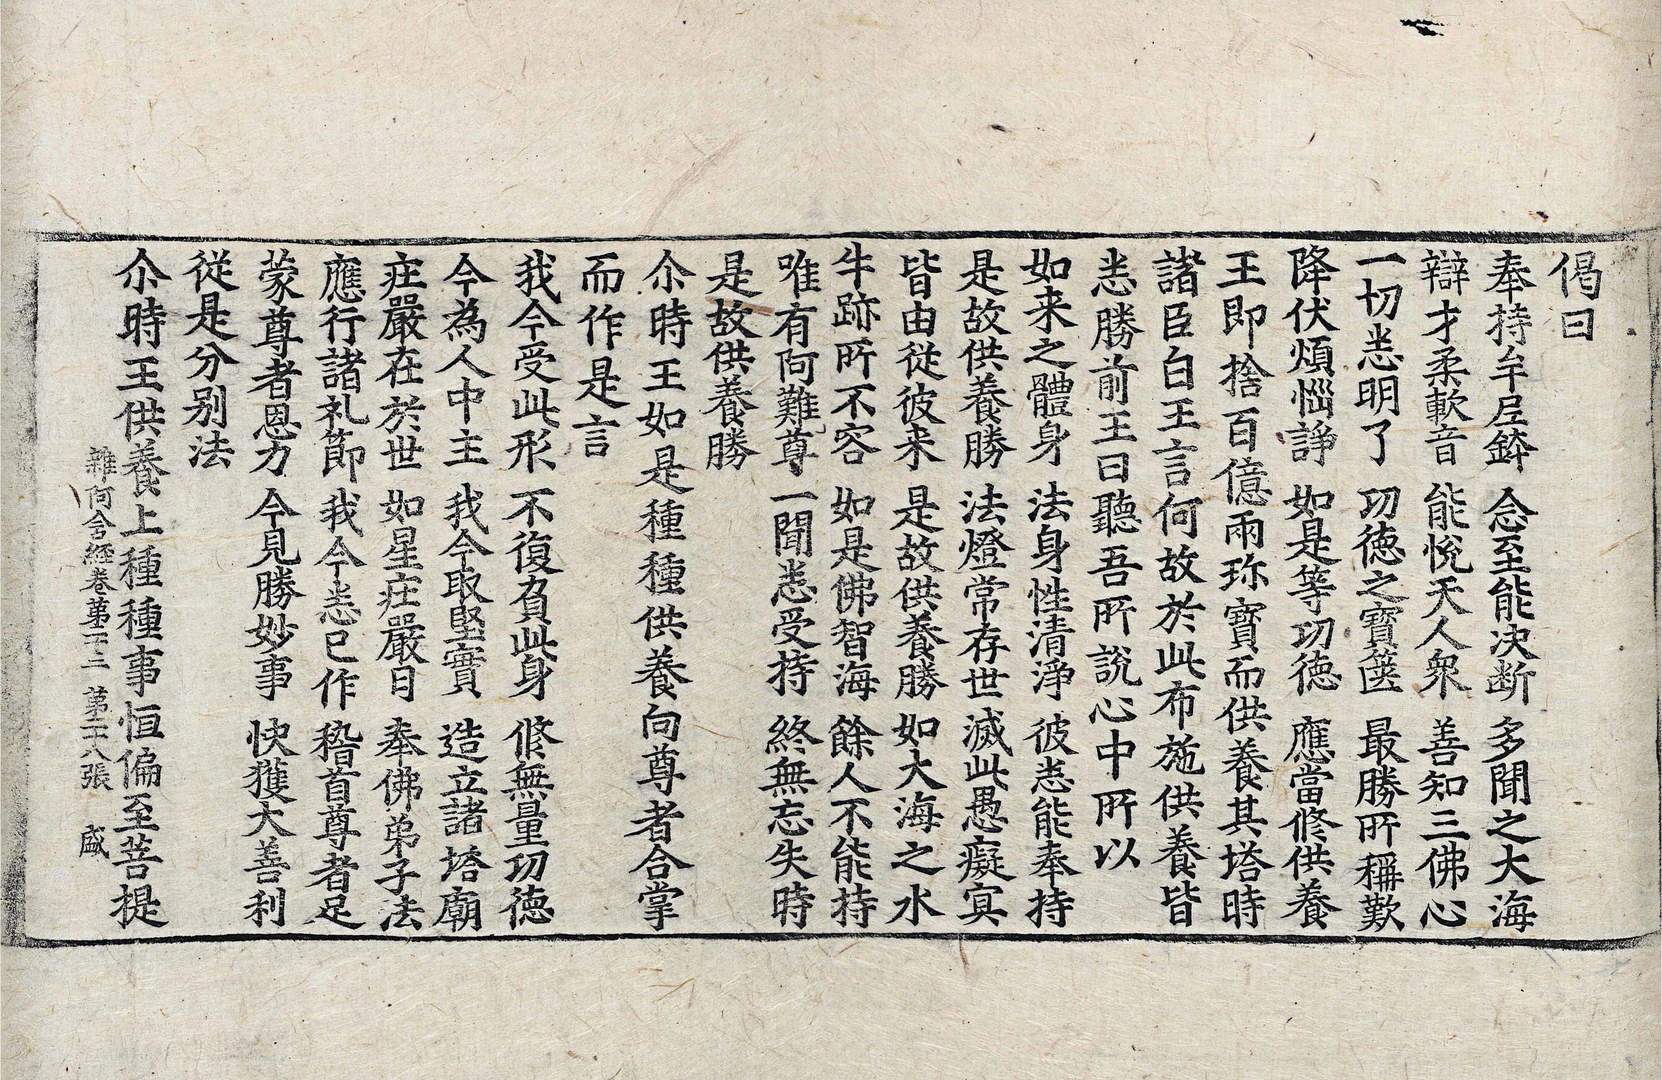 偈曰
奉持牟尼鉢　念至能决断　多聞之大海
辯才柔軟音　能悅天人衆　善知三佛心
一切悉明了　功徳之寶篋　最勝所稱歎
降伏煩惱諍　如是等功徳　應當修供養
王即捨百億兩珎寶而供養其塔時
諸臣白王言何故於此布施供養皆
悉勝前王曰聽吾所說心中所以
如来之體身　法身性清淨　彼悉能奉持
是故供養勝　法燈常存世　滅此愚癡冥
皆由従彼来　是故供養勝　如大海之水
牛跡所不容　如是佛智海　餘人不能持
唯有阿難尊　一聞悉受持　終無忘失時
是故供養勝
尒時王如是種種供養向尊者合掌
而作是言
我今受此形　不復負此身　修無量功徳
今為人中主　我今取堅實　造立諸塔廟
庄嚴在於世　如星庄嚴日　奉佛弟子法
應行諸礼節　我今悉已作　稽首尊者足
蒙尊者恩力　今見勝妙事　快獲大善利
従是分别法
尒時王供養上種種事恒偏至菩提
雜阿含經卷第二十三　第二十八張　盛